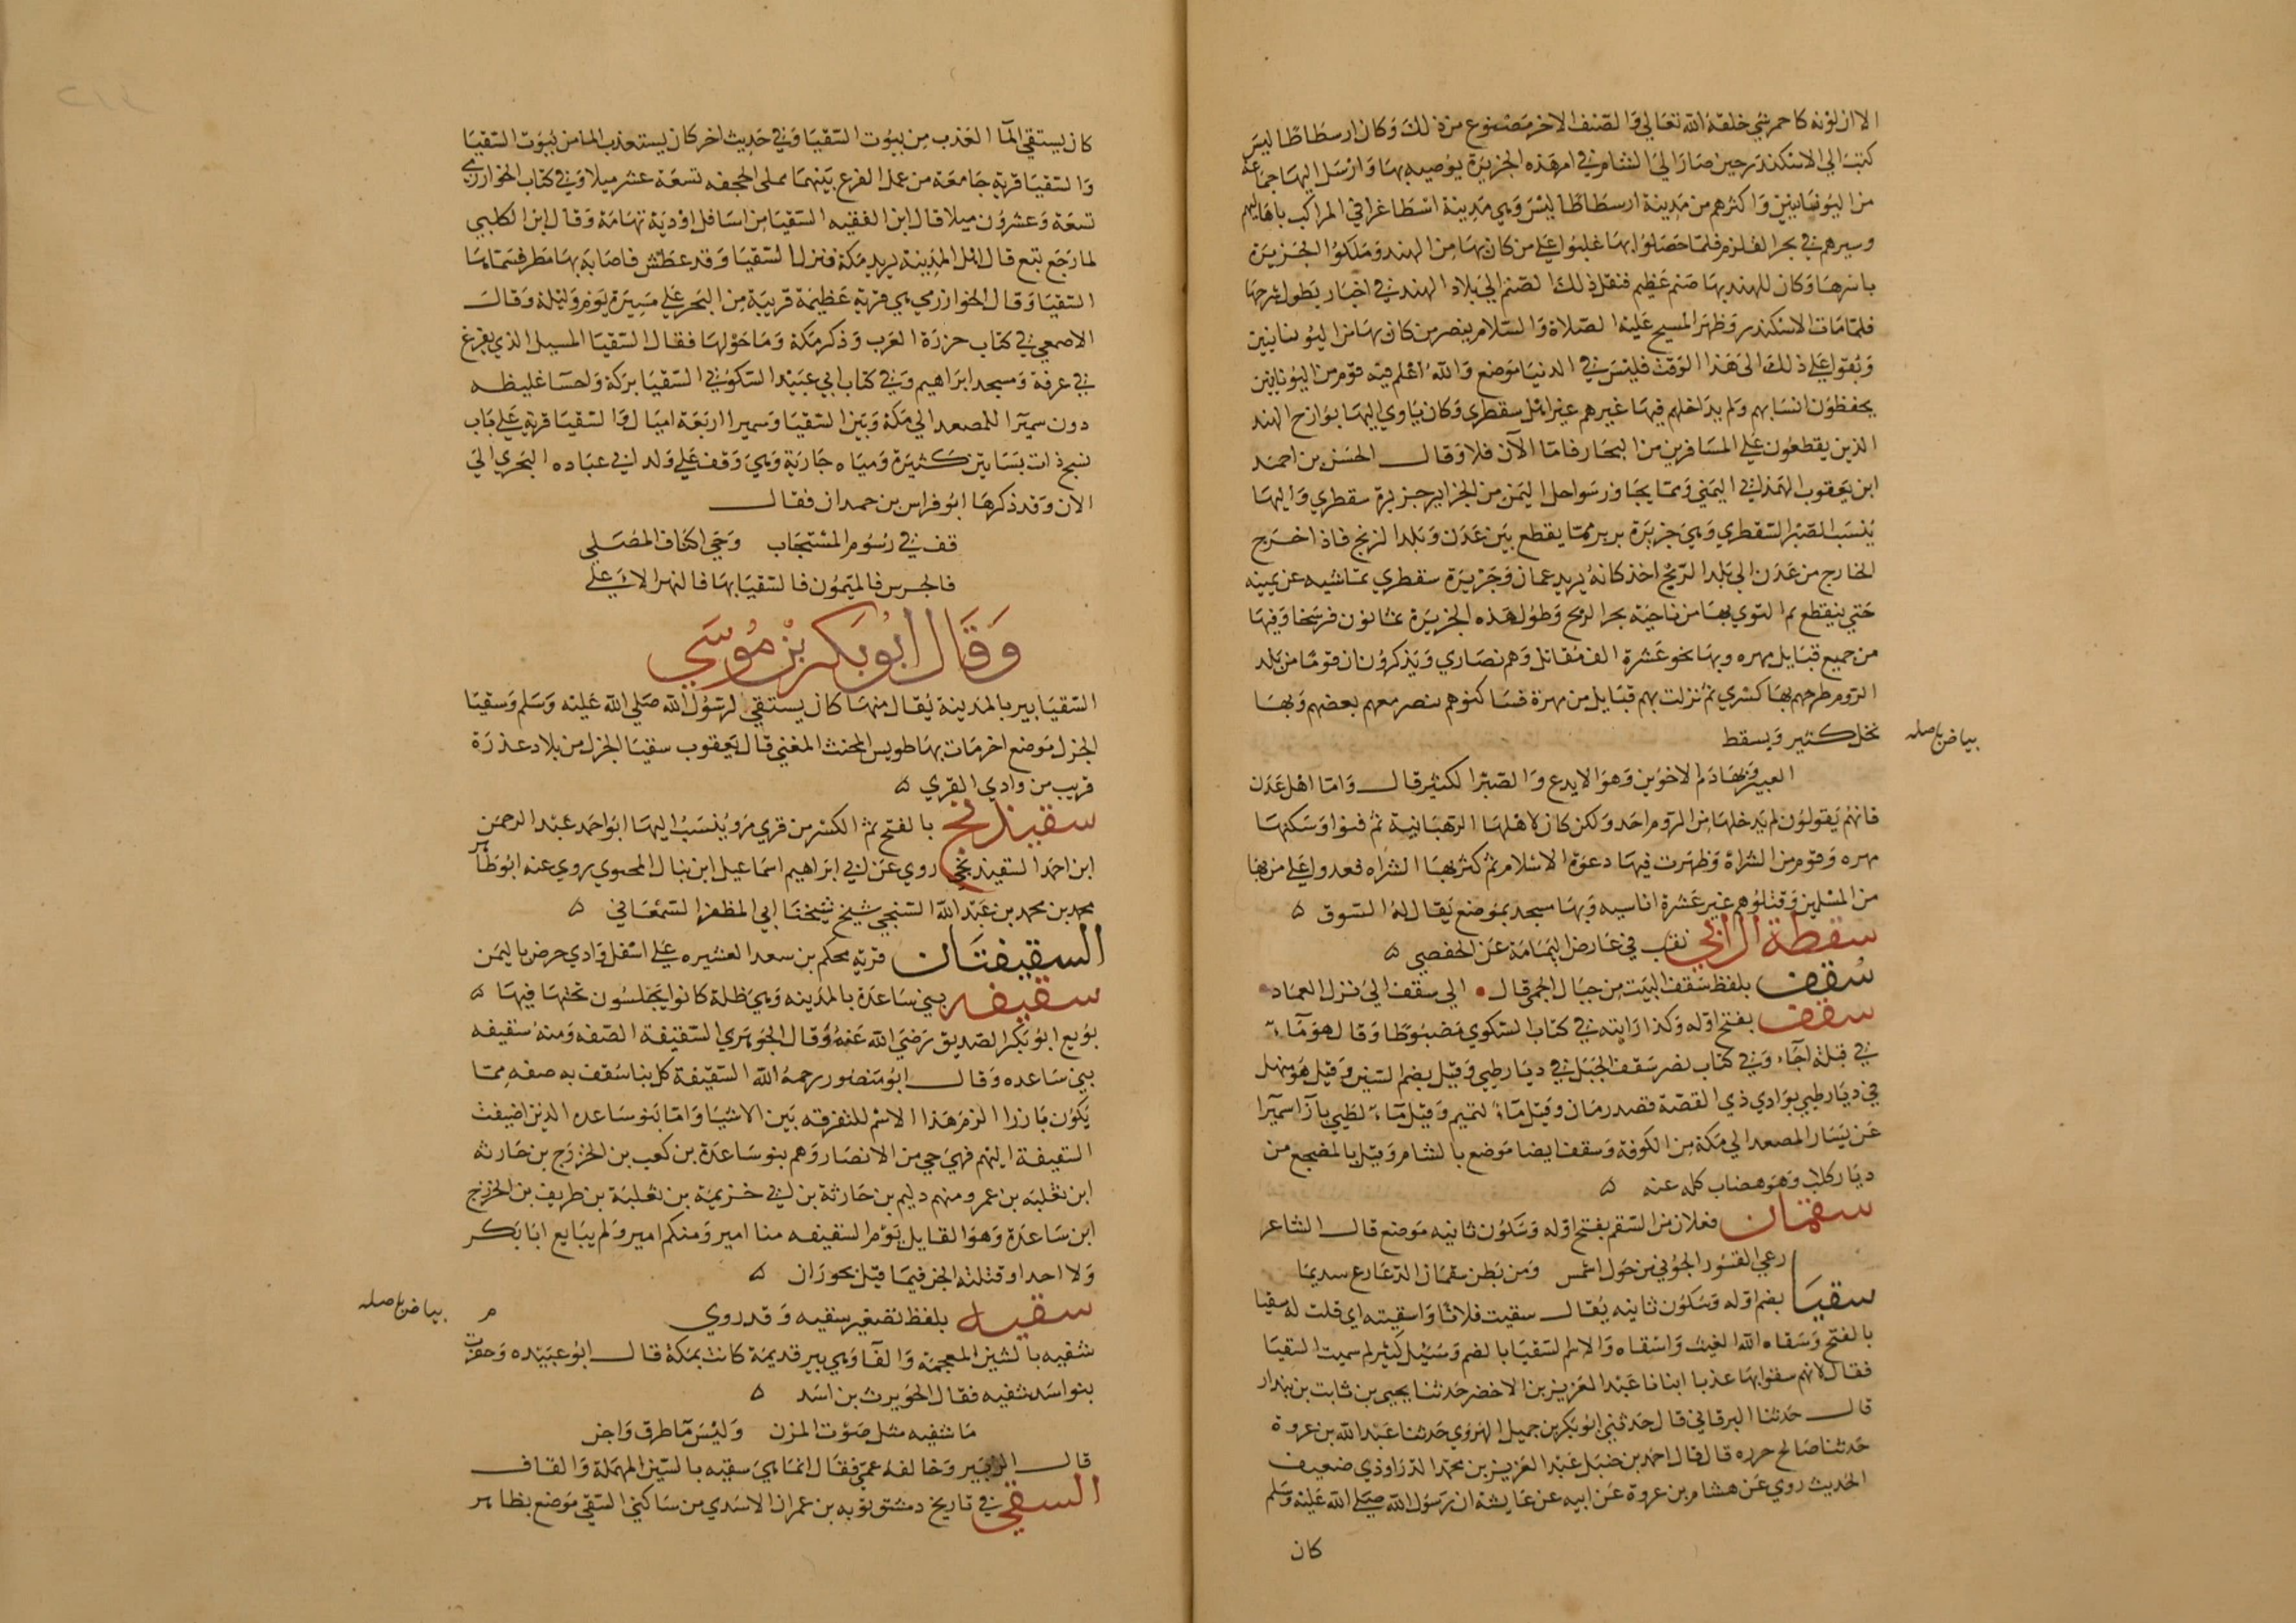 الا ان لونه كاحمر شي خلقه الله تعالي والصنف الاخر مصنوع من ذلك وكان ارسطاطاليس
كتب الي الاسكندر حين صار الي الشام في امر هذه الجزيرة يوصيه بها وارسل اليها جماعة
من اليونانيين واكثرهم من مدينة ارسطاطاليس وهي مدينة اسطاغرا في المراكب باهاليهم
وسيرهم في بحر القلزم فلما حصلوا بها غلبوا علي من كان بها من الهند وملكوا الجزيرة
باسرها وكان للهند بها صنم عظيم فنقل ذلك الصنم الي بلاد الهند في اخبار يطول شرحها
فلما مات الاسكندر وظهر المسيح عليه الصلاة والسلام تنصر من كان بها من اليونانيين
وبقوا علي ذلك الي هذا الوقت فليس في الدنيا موضع والله اعلم فيه قوم من اليونانيين
يحفظون انسابهم ولم يداخلهم فيها غيرهم غير اهل سقطري وكان ياوي اليها بوارح الهند
الذين يقطعون علي المسافرين من البحار فاما الآن فلا وقال الحسن بن احمد
ابن يعقوب الهمذاني اليمني ومما يجاور سواحل اليمن من الجزاير جزيرة سقطري واليها
ينسب الصبر السقطري وهي جزيرة بربر مما يقطع بين عدن وبلد الزنج فاذا خرج
الخارج من عدن الي بلد الزنج اخذ كانه يريد عمان وجزيرة سقطري تماشيه عن يمينه
حتي ينقطع ثم التوي بها من ناحية بحر الزنج وطول هذه الجزيرة ثمانون فرسخا وفيها
من جميع قبايل مهره وبها نحو عشرة الف مقاتل وهم نصاري ويذكرون ان قوما من بلد
الروم طرحهم بها كسري ثم نزلت بهم قبايل من مهرة فساكنوهم وتنصر معهم بعضهم وبها
نخل كثير ويسقط
بياض باصله
العبير وبها دم الاخوين وهو الايدع والصبر الكثير قال واما اهل عدن
فانهم يقولون لم يدخلها من الروم احد ولكن كان لاهلها الرهبانية ثم فنوا وسكنها
مهره وقوم من الشراة وظهرت فيها دعوة الاسلام ثم كثر بها الشراه فعدوا علي من بها
من المسلمين وقتلوهم غير عشرة اناسيه وبها مسجد بموضع يقال له السوق ه
سقطة الرالي نقب في عارض اليمامة عن الحفصي ه
سقف بلفظ سقف البيت من جبال الحمي قال الي سقف الي نزل العماد
سقف بفتح اوله وكذا رايته في كتاب السكوي مضبوطا وقال هو ماء
في قبلة اجاء وفي كتاب نصر سقف الجبل في ديار طيي وقيل بضم السين وقيل هو منهل
في ديار طيي بوادي ذي القصة قصد رمان وقيل ماء لتميم وقيل ماء لطيي بازآ سميرا
عن يسار المصعد الي مكة من الكوفة وسقف ايضا موضع بالشام وقيل بالمضجع من
ديار كلاب وهو هضاب كله عنه ه
سقمان فعلان من السقم بفتح اوله وسكون ثانيه موضع قال الشاعر
رعي القسور الجوني من حول اشمس ومن بطن سقمان الدعارع سديما
سقيا بضم اوله وسكون ثانيه يقال سقيت فلانا واسقيته اي قلت له سقيا
بالفتح وسقاه الله الغيث واسقاه والاسم السقيا بالضم وسئل كثير لم سميت السقيا
فقال لانهم سقوا بها عذبا انبانا عبد العزيز بن الاخضر حدثنا يحيي بن ثابت بن بندار
قال حدثنا البرقاني قال حدثني ابو بكر بن جميل الهروي حدثنا عبد الله بن عروة
حدثنا صالح جزره قال قال احمد بن حنبل عبد العزيز بن محمد الدراوذي ضعيف
الحديث روي عن هشام بن عروة عن ابيه عن عايشة ان رسول الله صلي الله عليه وسلم
كان
كان يستقي المآ العذب من بيوت السقيا وفي حديث اخر كان يستعذب الما من بيوت السقيا
والسقيا قرية جامعة من عمل الفرع بينهما مما يلي الجحفه تسعة عشر ميلا وفي كتاب الخوارزمي
تسعة وعشرون ميلا قال ابن الفقيه السقيا من اسافل اودية تهامة وقال ابن الكلبي
لما رجع تبع قال اهل المدينة يريد مكة فنزل السقيا وقد عطش فاصابه بها مطر فسماها
السقيا وقال الخوارزمي هي قرية عظيمة قريبة من البحر علي مسيرة يوم وليلة وقال
الاصمعي في كتاب جزرة العرب وذكر مكة وما حولها فقال السقيا المسيل الذي يفرغ
في عرفة ومسجد ابراهيم وفي كتاب ابي عبيد السكوني السقيا بركة واحسا غليظه
دون سميرا للمصعد الي مكة وبين السقيا وسميرا اربعة اميال والسقيا قرية علي باب
نبج ذات بساتين كثيرة ومياه جارية وهي وقف علي ولد ابي عباده البحري الي
الان وقد ذكرها ابو فراس بن حمدان فقال
قف في رسوم المستجاب وحي اكناف المصلي
فالجرس فالميمون فالسقيا بها فالنهر الاعلي
وقال ابو بكر بن موسي
السقيا بير بالمدينة يقال منها كان يستقي لرسول الله صلي الله عليه وسلم وسقيا
الجزل موضع اخر مات بها طويس المخنث المغني قال يعقوب سقيا الجزل من بلاد عذرة
قريب من وادي القري ه
سقيذنج بالفتح ثم الكسر من قري مرو ينسب اليها ابو احمد عبد الرحمن
ابن احمد السقيذنجي روي عن ابي ابراهيم اسماعيل ابن ينال المحبوي روي عنه ابو طاهر
محمد بن محمد بن عبد الله السنجي شيخ شيخنا ابي المظفر السمعاني ه
السقيفتان قرية محكم بن سعد العشيره علي اسفل وادي حرض باليمن
سقيفه بني ساعدة بالمدينه وهي ظلة كانوا يجلسون تحتها فيها ه
بويع ابو بكر الصديق رضي الله عنه وقال الجوهري السقيفة الصفه ومنه سقيفه
بني ساعده وقال ابو منصور رحمه الله السقيفة كل بنا سقف به صفه مما
يكون بارزا الزم هذا الاسم للتفرقه بين الاشيا واما بنو ساعده الذين اضيفت
السقيفة اليهم فهي حي من الانصار وهم بنو ساعدة بن كعب بن الخزرج بن حارثه
ابن ثعلبه بن عمرو منهم دليم بن حارثة بن ابي خزيمة بن ثعلبة بن طريف بن الخزرج
ابن ساعدة وهو القايل يوم السقيفه منا امير ومنكم امير ولم يبايع ابا بكر
ولا احدا وقتلته الجن فيما قيل بحوران ه
سقيه بلفظ تصغير سقيه وقد روي م
بياض باصله
شفيه بالشين المعجمة والفا وهي بير قديمة كانت بمكة قال ابو عبيده وحفرت
بنو اسد شفيه فقال الحويرث بن اسد ه
ما شفيه مثل صوت المزن وليس ما طرق واجن
قال الزبير وخالفه عمي فقال انما هي سقيه بالسين المهملة والقاف
السقي في تاريخ دمشق نوبه بن عمران الاسدي من ساكني السقي موضع بظاهر